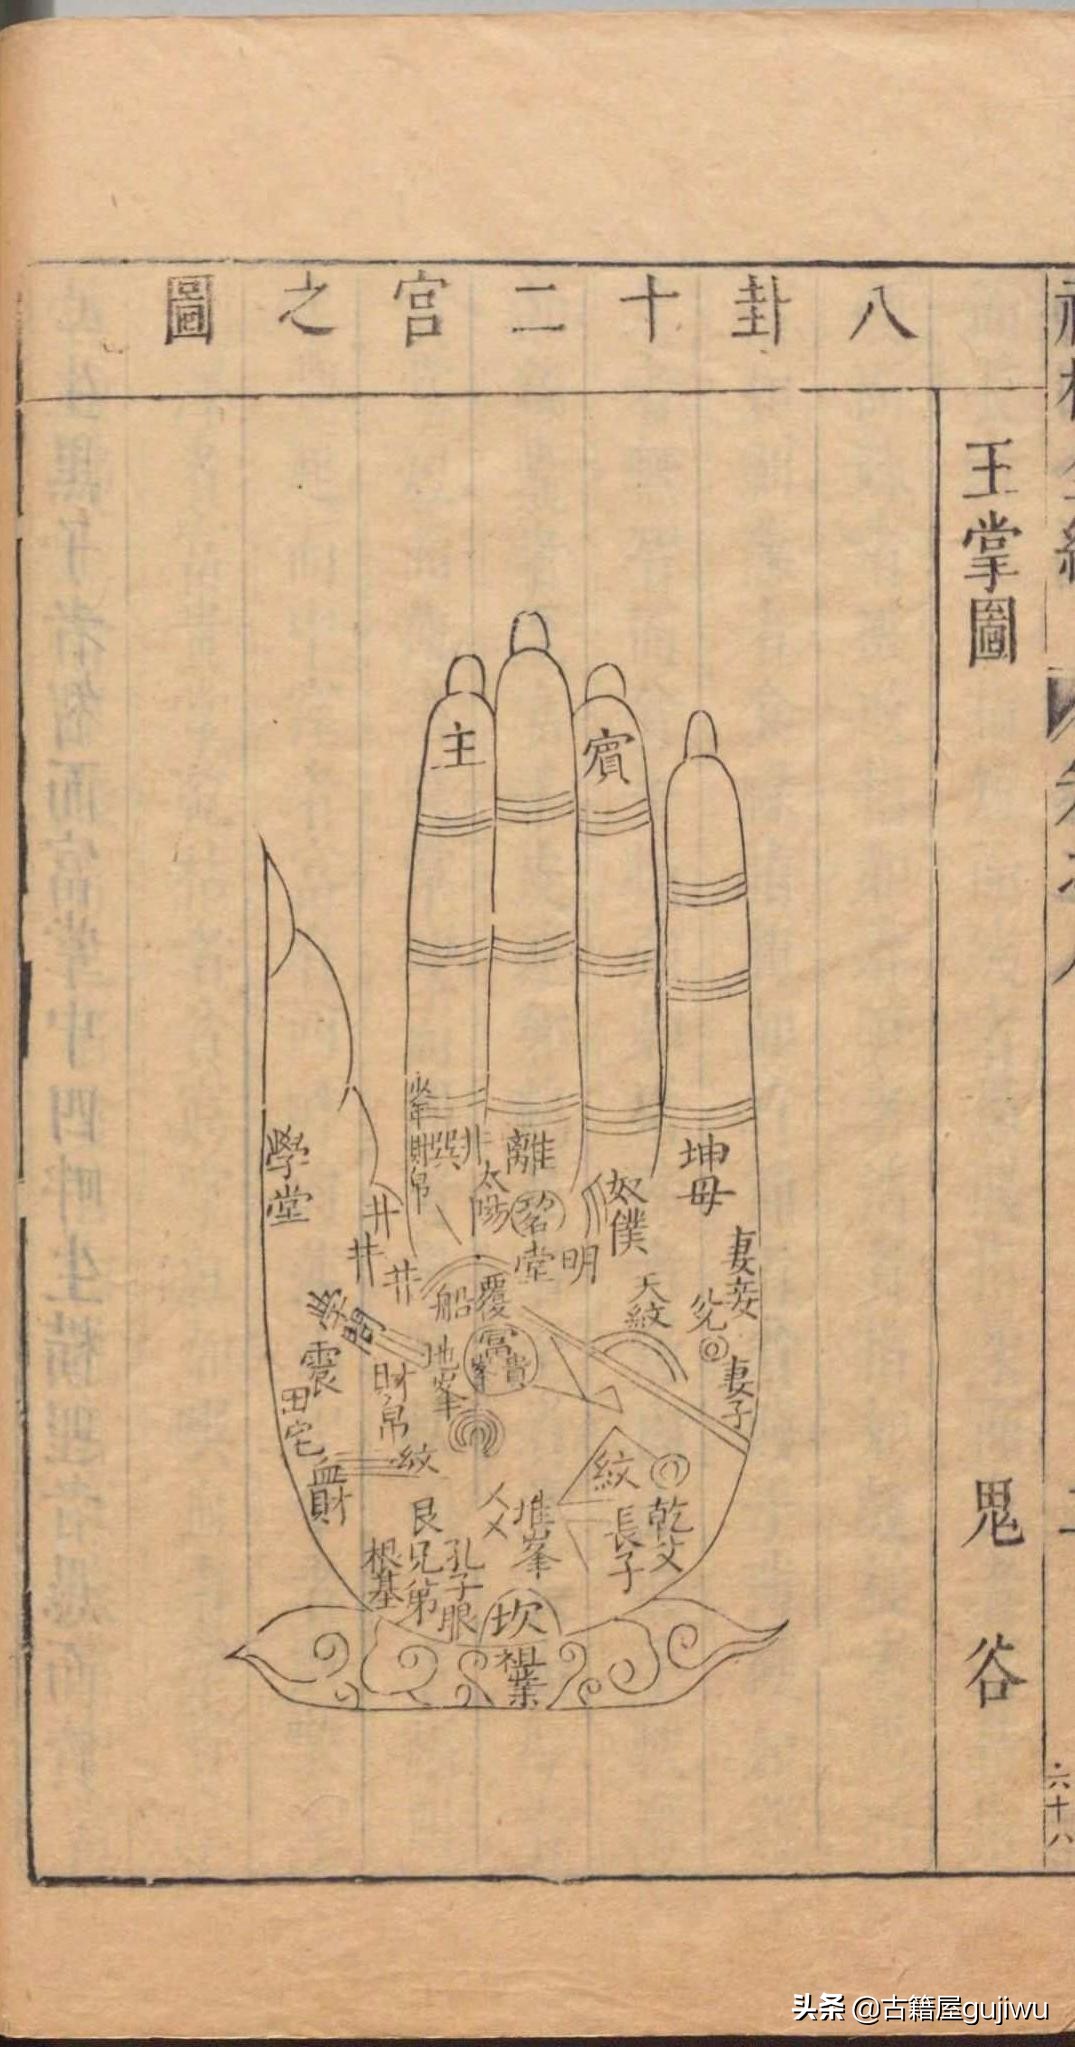 八卦十二宮之圖
玉掌圖
鬼谷
六十八
主
賓
學堂
峯財帛
巽
井
離
太陽
明堂
奴僕
坤母
妻妾
兌
妻子
天紋
井
井
井
覆船
學問
震
田宅
財帛
地峯
富貴
紋
血財
艮
兄弟
根基
孔子眼
堆峯
紋
乾父
長子
坎
祖業
头条 @古籍屋gujiwu